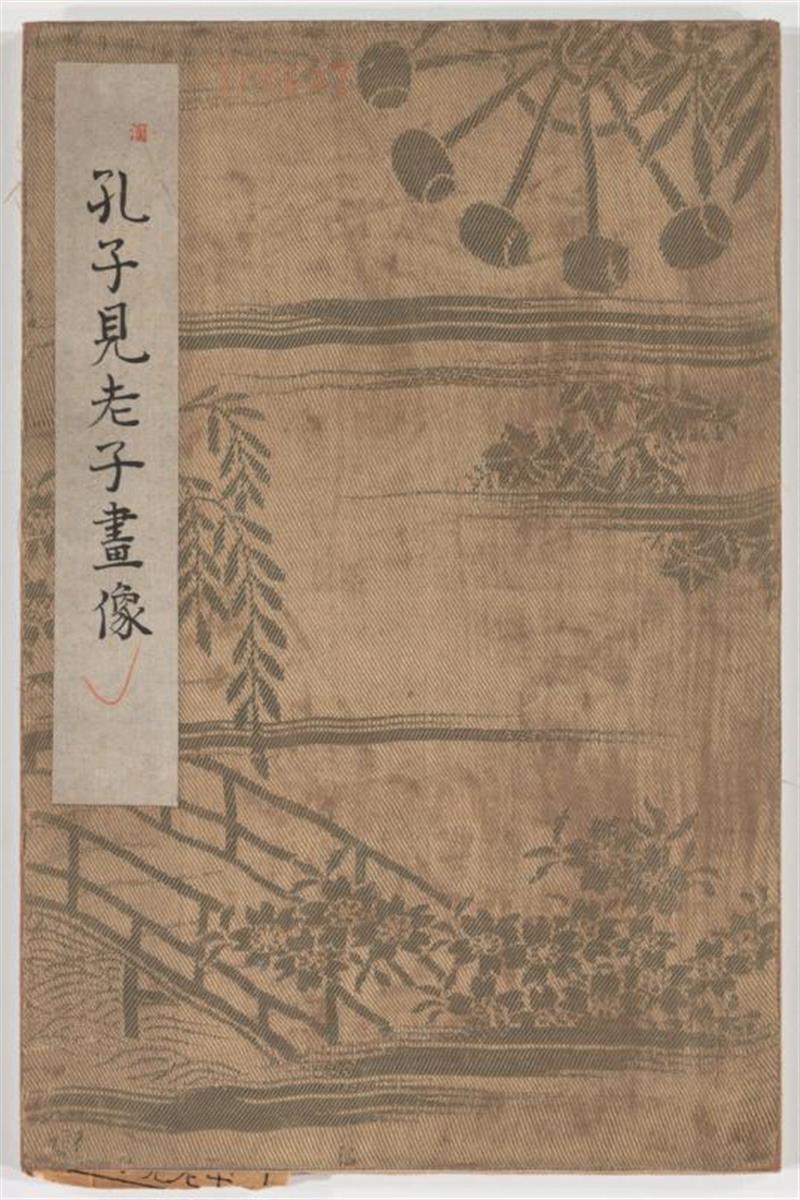 孔子見老子畫像